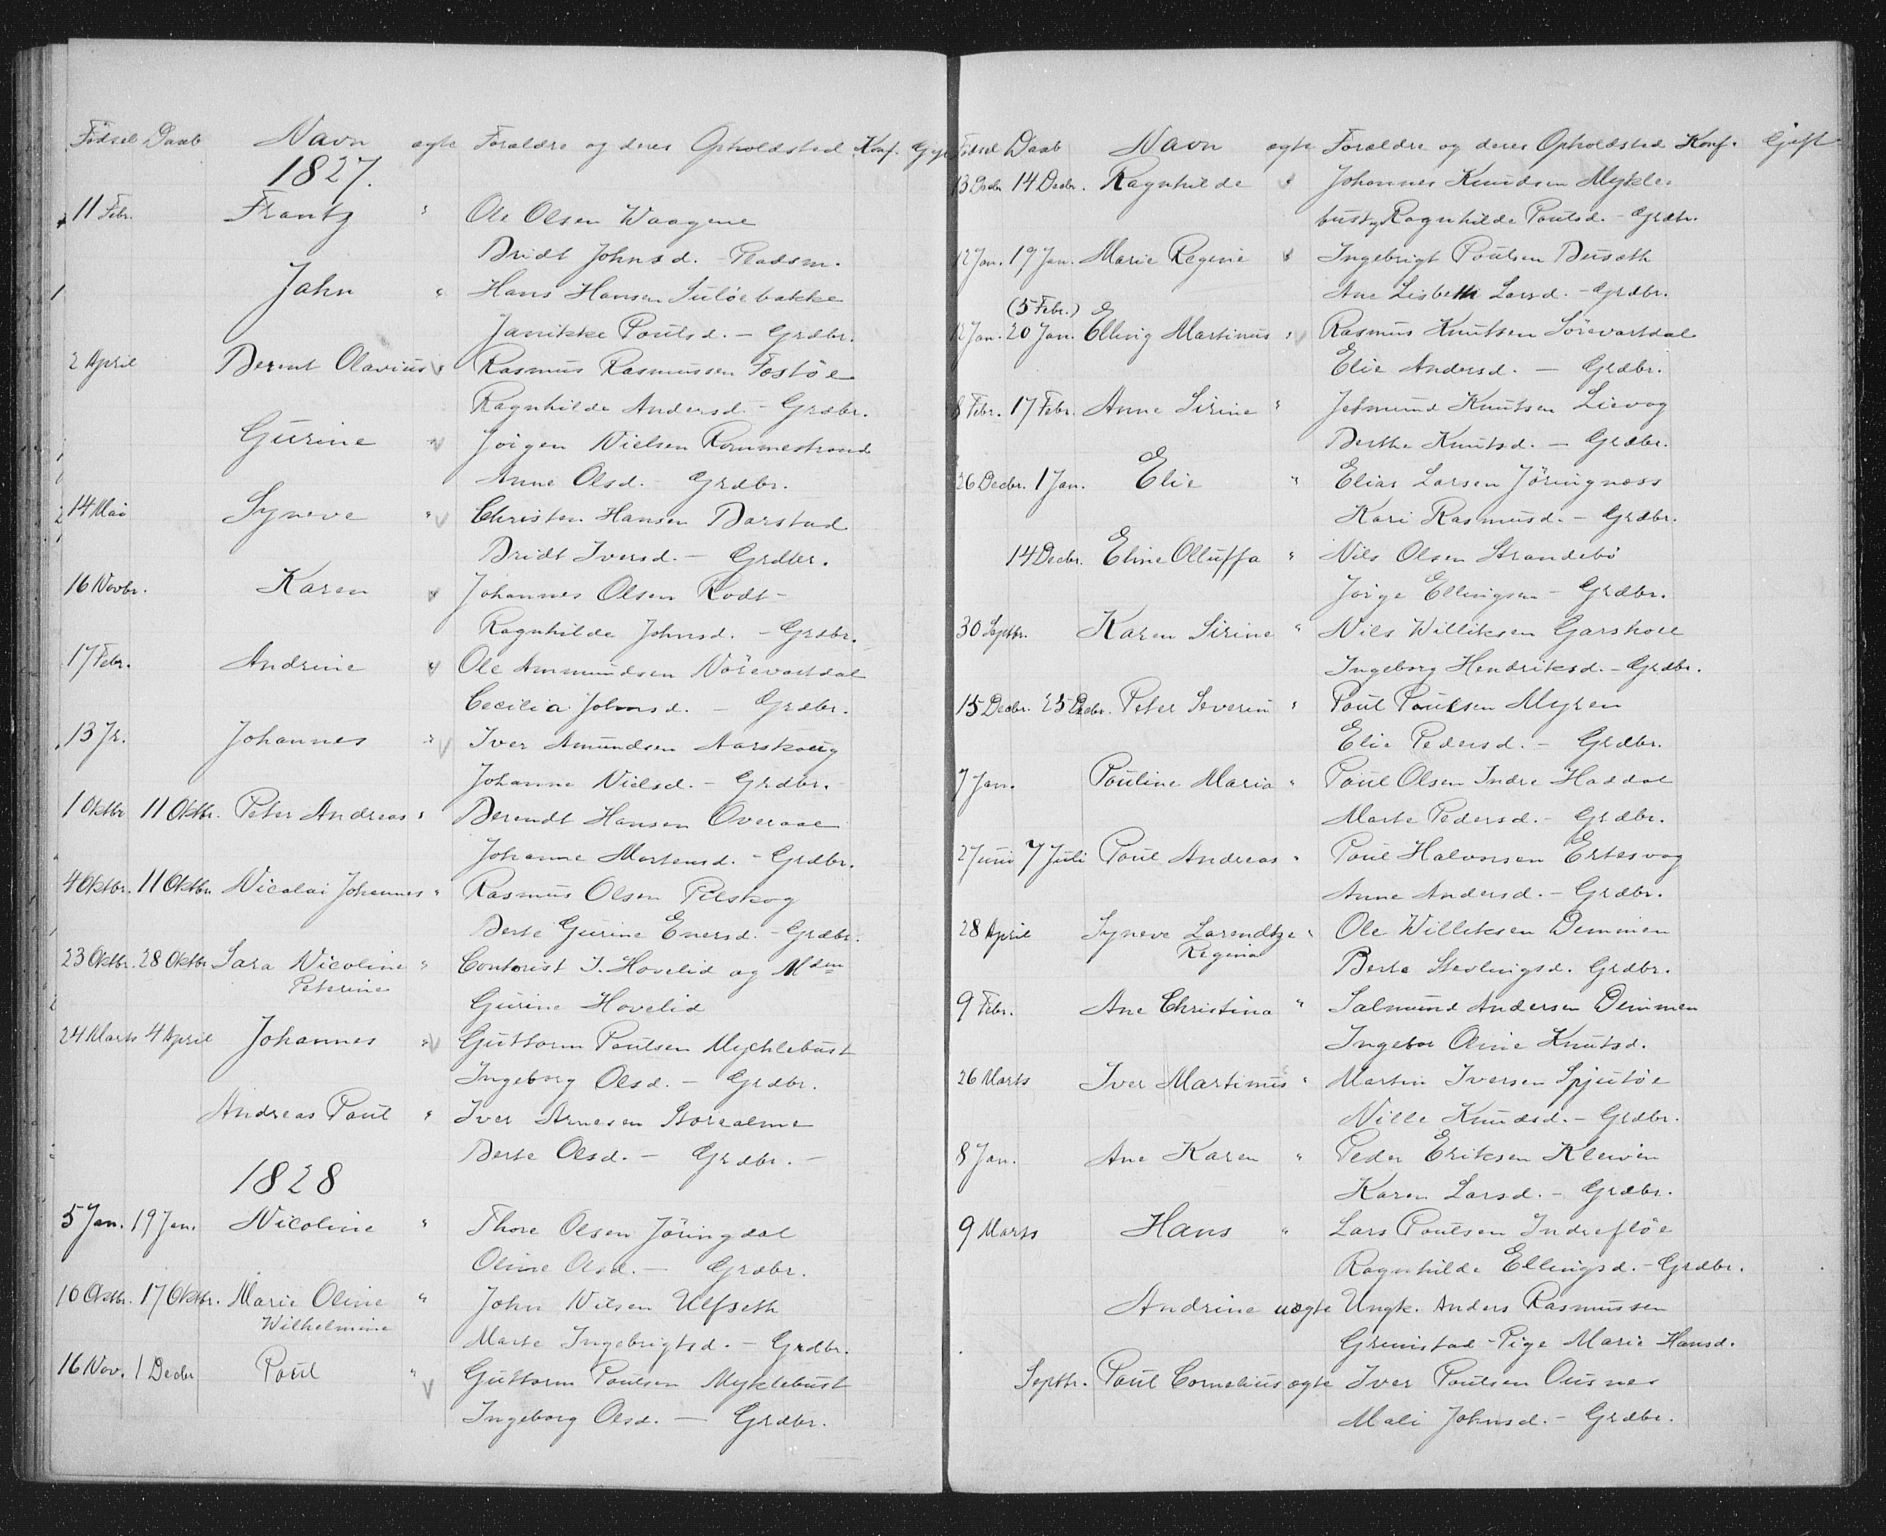 Fødsel Daab Navn ægte Forældre og deres Opholdsted Konf.
1827.
11 Febr. Frantz " Ole Olsen Waagene
Bridt Johnsd. - Pladsm.
Jahn " Hans Hansen Suløebakke
Janikke Poulsd. - Grdbr.
2 April Berent Olavius " Rasmus Rasmussen Tostøe
Ragnhilde Andersd. - Grdbr.
Gurine " Jørgen Nielsen Rommestrand
Anne Olsd. - Grdbr.
14 Mai Syneve " Christen Hansen Barstad
Bridt Iversd. - Grdbr.
16 Novbr. Karen " Johannes Olsen Rodt -
Ragnhilde Johnsd. - Grdbr.
17 Febr. Andrine " Ole Ammundsen Nörevartdal
Cecilia Johnsd. - Grdbr.
13 Johannes " Iver Amundsen Aarskoug
Johanne Nielsd. - Grdbr.
1 Oktbr 11 Oktbr. Peter Andreas " Berendt Hansen Overaae
Johanne Mortensd. - Grdbr.
4 Oktbr. 11 Oktbr. Nicolai Johannes " Rasmus Olsen Pilskog
Berte Gurine Enersd. - Grdbr.
23 Oktbr. 28 Oktbr Sara Nicoline " Contorist J. Hovelid og Mdm
Peterine Gurine Hovelid
24 Marts 4 April Johannes " Guttorm Poulsen Mychlebust
Ingeborg Olsd. - Grdbr.
Andreas Poul " Iver Arnesen Storealme
Berte Olsd. - Grdbr. -
1828
5 Jan. 19 Jan. Nicoline " Thore Olsen Jöringdal
Oline Olsd. - Grdbr.
10 Oktbr. 17 Oktbr. Marie Oline " John Nilsen Ulfseth
Wilhelmine Marte Ingebrigtsd. - Grdbr.
16 Nov. 1 Decbr Poul " Guttorm Poulsen Myklebust
Ingeborg Olsd. - Grdbr.
Fødsel Daab Navn ægte Forældre og deres Opholdsted Konf. Gift
13 Decbr. 14 Decbr. Ragnhilde " Johannes Knudsen Mykle-
bust, Ragnhilde Poulsd. - Grdbr.
12 Jan. 19 Jan. Marie Regine " Ingebrigt Poulsen Buseth
Ane Lisbeth Larsd. - Grdbr.
(5 Febr.)
12 Jan. 20 Jan. Elling Martinus " Rasmus Knutsen Sörevartdal
Elie Andersd. - Grdbr.
8 Febr. 17 Febr. Anne Sirine " Jetmund Knutsen Lievog
Berthe Knutsd. - Grdbr.
26 Decbr. 1 Jan. Elie " Elias Larsen Jöringnæss
Kari Rasmusd. - Grdbr.
14 Decbr. Eline Olluffa " Nils Olsen Strandebö
Jörge Ellingsen - Grdbr.
30 Septbr. Karen Sirine " Nils Williksen Garshole
Ingeborg Hendriksd. - Grdbr.
15 Decbr. 25 Decbr. Peter Severin " Poul Poulsen Myren
Elie Pedersd. - Grdbr.
7 Jan. Pouline Maria " Poul Olsen Indre Haddal
Marte Pedersd. - Grdbr.
2 Juni 7 Juli Poul Andreas " Poul Halvorsen Ertesvog
Anne Andersd. - Grdbr.
28 April Syneve Larendtze " Ole Williksen Demmen
Regina Berte Stevlingsd. Grdbr.
9 Febr. Ane Christina " Salmund Andersen Demmen
Ingebor Oline Knutsd.
26 Marts Iver Martinus " Martin Iversen Spjutøe
Nille Knudsd. - Grdbr.
8 Jan. Ane Karen " Peder Eriksen Kleiven
Karen Larsd. - Grdbr.
9 Marts Hans " Lars Poulsen Indrefløe
Ragnhilde Ellingsd. - Grdbr.
Andrine uægte Ungk. Anders Rasmussen
Grimstad - Pige Marie Hansd.
Septbr. Poul Cornelius ægte Iver Poulsen Ousnes
Mali Johnsd. - Grdbr.